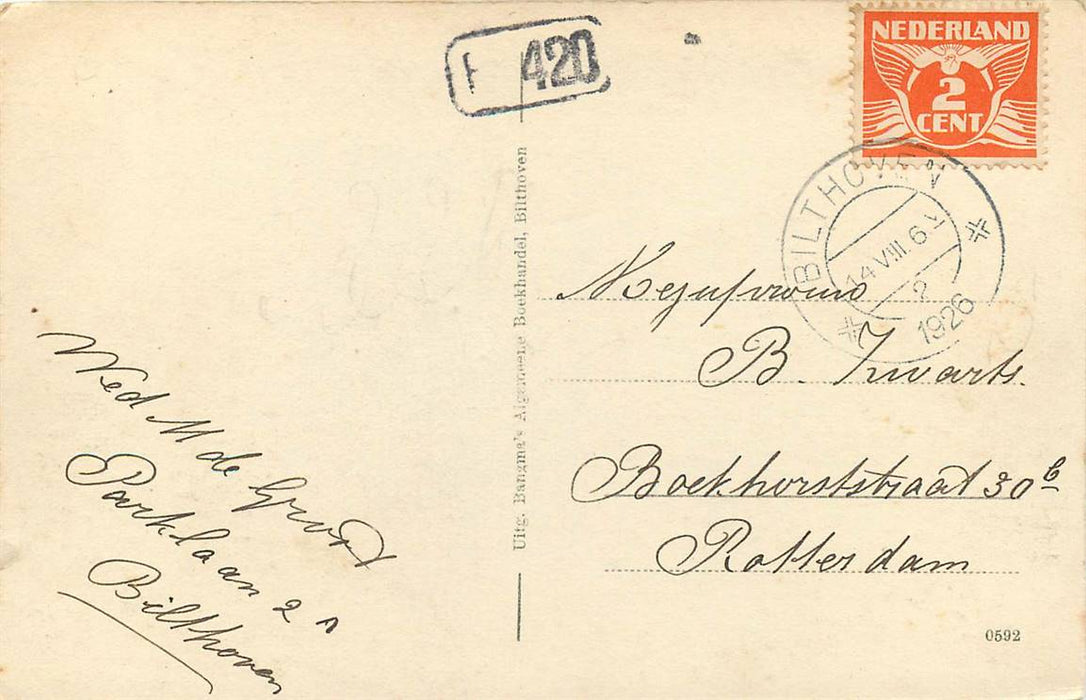 420
NEDERLAND
2
CENT
BILTHOVEN
14 VIII. 6
1926
Uitg. Bangma's Algemeene Boekhandel, Bilthoven
Mejufvrouw
B. Zwarts.
Boekhorststraat 30 b
Rotterdam
Wed M de Groot
Parklaan 2 A
Bilthoven
0592